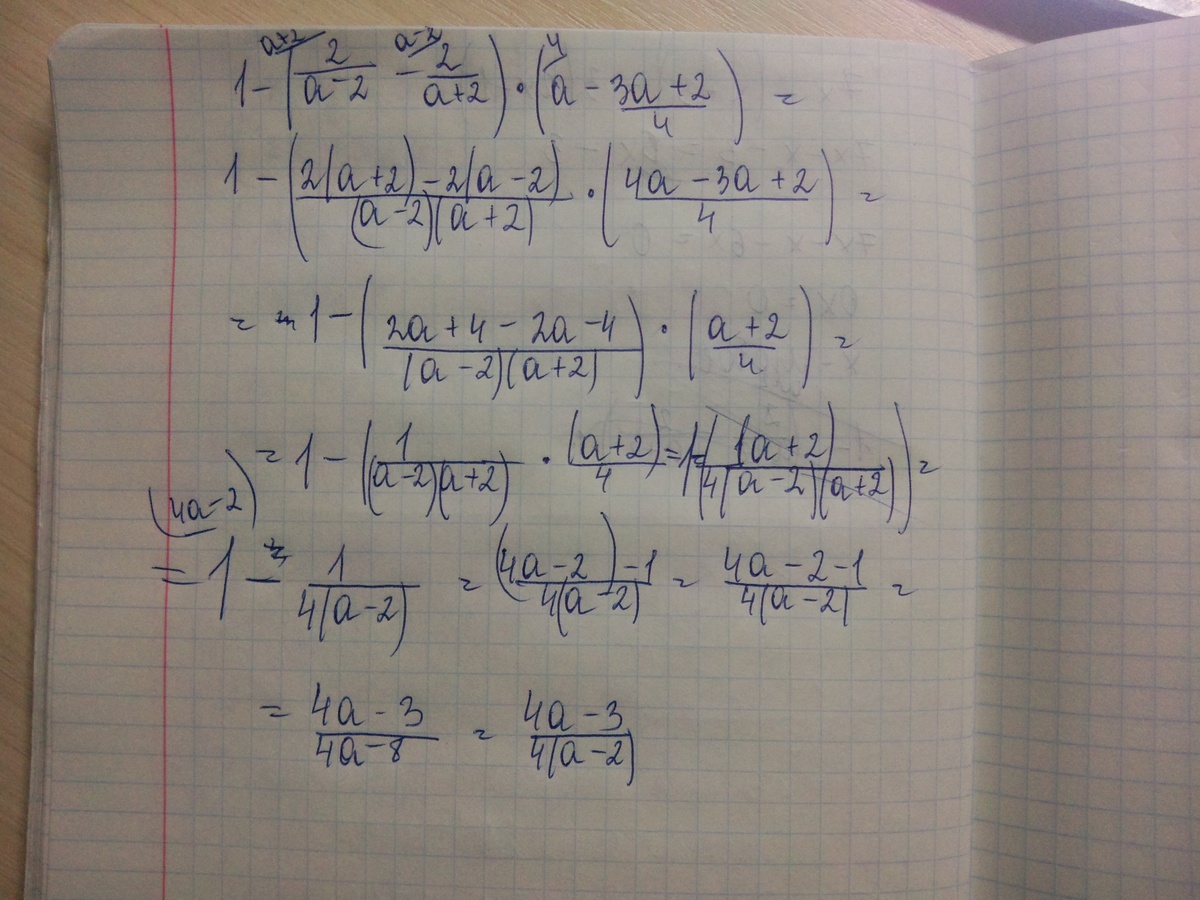 a+2 a-2 4
1 - (2/(a-2) - 2/(a+2)) · (a - (3a+2)/4) =
1 - (2(a+2) - 2(a-2))/((a-2)(a+2)) · ((4a - 3a + 2)/4) =
= 1 - ((2a+4 - 2a - 4)/((a-2)(a+2))) · ((a+2)/4) =
= 1 - (1/((a-2)(a+2)) · (a+2)/4 = 1 - (1(a+2)/(4(a-2)(a+2))) =
(4a-2)
= 1 - 1/(4(a-2)) = ((4a-2) - 1)/(4(a-2)) = (4a - 2 - 1)/(4(a-2)) =
= (4a - 3)/(4a - 8) = (4a - 3)/(4(a-2))